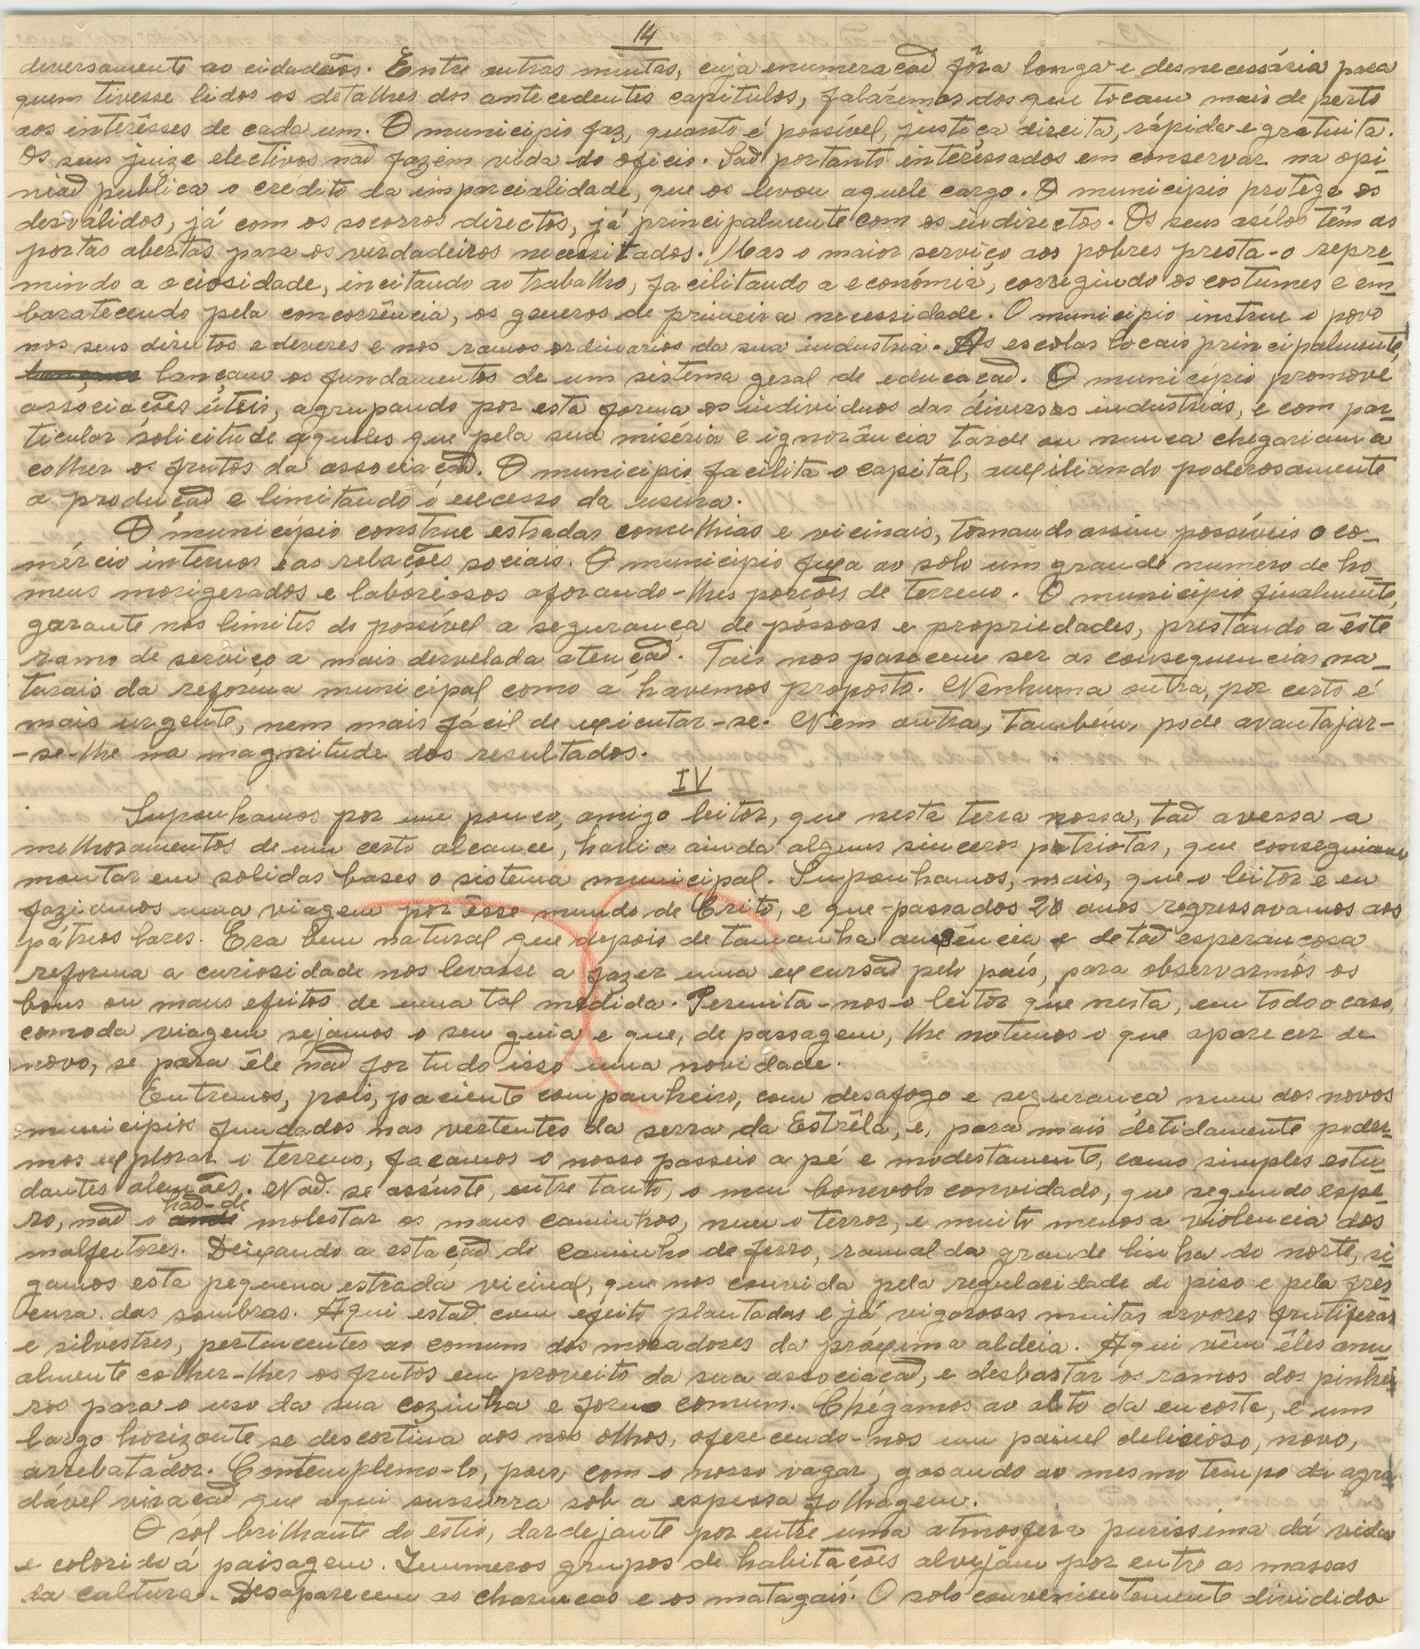 14
diversamente ao cidadãos. Entre outras muitas, cuja enumeração fôra longa e desnecessária para
quem tivesse lidos os detalhes dos antecedentes capitulos, falaremos dos que tocam mais de perto
aos interêsses de cada um. O municipio faz, quanto é possível, justiça direita, rápida e gratuita.
Os seus juize electivos não fazem vida do oficio. São portanto interessados em conservar na opi-
nião publica o crédito da imparcialidade, que os levou aquele cargo. O municipio protége os
desválidos, já com os socorros directos, já principalmente com os indirectos. Os seus asilos têm as
portas abertas para os verdadeiros necessitados. Mas o maior serviço aos pobres presta-o repri-
mindo a ociosidade, incitando ao trabalho, facilitando a económia, corregindo os costumes e em-
baratecendo pela concorrência, os generos de primeira necessidade. O municipio instrue o povo
nos seus direitos e deveres e nos ramos ordinarios da sua industria. As escolas locais principalmente,
lançam os fundamentos de um sistema geral de educação. O municipio promove
associações úteis, agrupando por esta forma os individuos das diversas industrias, e com par-
ticular solicitude aqueles que pela sua miséria e ignorância tarde ou nunca chegariam a
colher os frutos da associação. O municipio facilita o capital, auxiliando poderosamente
a produção e limitando o excesso da usura.
O municipio construe estradas concelhias e vicinais, tornando assim possíveis o co-
mércio internos e as relações sociais. O municipio fixa ao solo um grande numero de ho
mens morigerados e laboriosos aforando-lhes porções de terreno. O municipio finalmente,
garante nos limites do possível a segurança de pessoas e propriedades, prestando a êste
ramo de serviço a mais desvelada atenção. Tais nos parecem ser as consequencias na-
turais da reforma municipal, como a havemos proposto. Nenhuma outra, por certo é
mais urgente, nem mais fácil de executar-se. Nem outra, também, pode avantajar-
-se-lhe na magnitude dos resultados.
IV
Suponhamos por um pouco, amigo leitor, que nesta terra nossa, tão avessa a
melhoramentos de um certo alcance, havia ainda alguns sinceros patriotas, que conseguiam
montar em solidas bases o sistema municipal. Suponhamos, mais, que o leitor e eu
faziamos uma viagem por êsse mundo de Cristo, e que passados 20 anos regressavamos aos
pátrios lares. Era bem natural que depois de tamanha ausência e de tão esperançosa
reforma a curiosidade nos levasse a fazer uma excursão pelo país, para observarmos os
bons ou maus efeitos de uma tal medida. Permita-nos o leitor que nesta, em todo o caso,
comoda viagem sejamos o seu guia e que, de passagem, lhe notemos o que aparecer de
novo, se para êle não for tudo isso uma novidade.
Entremos, pois, paciente companheiro, com desafogo e segurança num dos novos
municipios fundados nas vertentes da serra da Estrêla, e, para mais detidamente poder-
mos explorar o terreno, façamos o nosso passeio a pé e modestamente, como simples estu-
dantes alemães. Não se assuste, entre tanto, o meu benevolo convidado, que segundo espe-
ro, não o hão-de molestar os maus caminhos, nem o terror, e muito menos a violencia dos
malfeitores. Deixando a estação do caminho de ferro, ramal da grande linha do norte, si-
gamos esta pequena estrada vicinal, que nos convida pela regularidade do piso e pela fres-
cura das sombras. Aqui estão com efeito plantadas e já vigorosas muitas arvores frutiferas
e silvestres, pertencentes ao comum dos moradores da próxima aldeia. Aqui vêm êles anu-
almente colher-lhes os frutos em proveito da sua associação, e desbastar os ramos dos pinhei-
ros para o uso da sua cozinha e forno comum. Chegamos ao alto da encosta, e um
largo horizonte se descortina aos nos olhos, oferecendo-nos um painel delicioso, novo,
arrebatador. Contemplemo-lo, pois, com o nosso vagar, gosando ao mesmo tempo da agra-
dável viração que aqui sussurra sob a espessa folhagem.
O sol brilhante do estio, dardejante por entre uma atmosfera purissima dá vida
e colorido à paisagem. Inumeros grupos de habitações alvejam por entre as massas
da cultura. Desaparecem as charnecas e os matagais. O solo convenientemente dividido